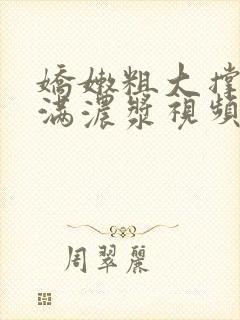 嬌嫩粗大撐
滿濃漿視頻
周翠麗